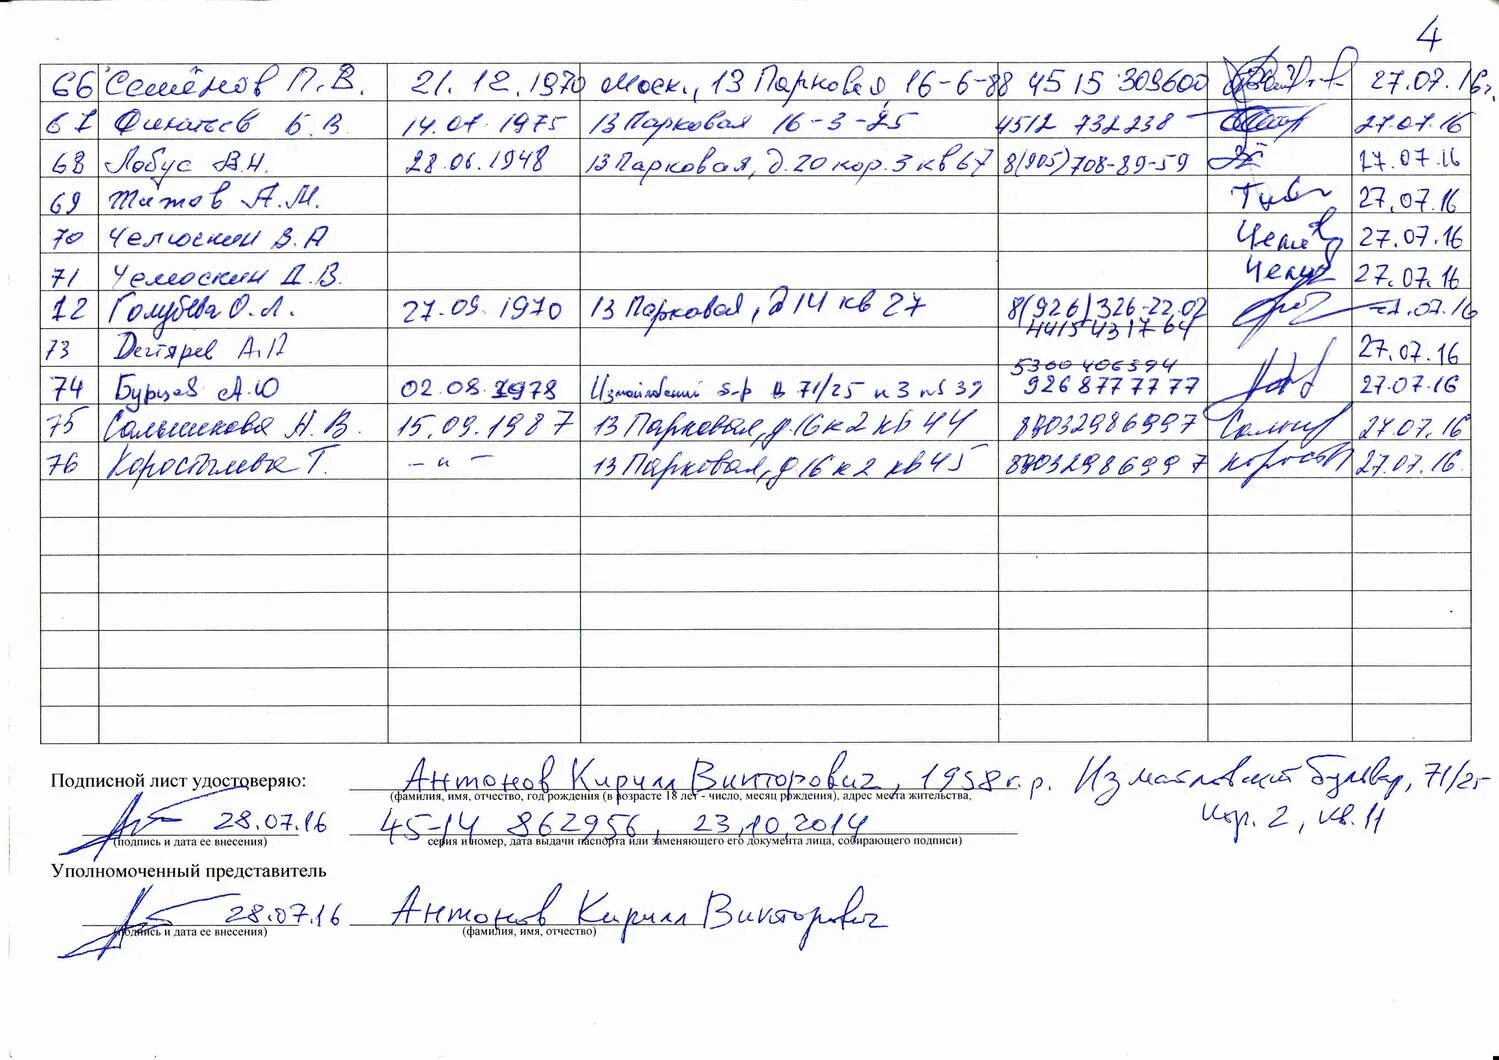 4
66 Семёнов П.В. 21.12.1970 Моск., 13 Парковая, 16-6-88 4515 309600 27.07.16г.
67 Б.В. 14.07.1975 13 Парковая 16-3-25 4512 732238 27.07.16
68 Лобус В.Н. 28.06.1948 13 Парковая, д.20 кор.3 кв67 8(905)708-89-59 27.07.16
69 Титов А.М. 27.07.16
70 Челюскин В.А 27.07.16
71 Челюскин Д.В. 27.07.16
72 Голубева О.Л. 27.09.1970 13 Парковая, д14 кв 27 8(926)326-22.02 27.07.16
4415 431764
73 Дегтярев А.П 27.07.16
5300 406394
74 Бурцев А.Ю 02.08.1978 Измайловский б-р 71/25 к3 926 877 77 77 27.07.16
75 Сальникова Н.В. 15.09.1987 13 Парковая, д.16 к2 кв 44 89032986997 27.07.16
76 Коростылева Т. -"- 13 Парковая, д16 к2 кв45 89032986997 27.07.16.
Подписной лист удостоверяю: Антонов Кирилл Викторович, 1958г.р. Измайловский бульвар, 71/25
(фамилия, имя, отчество, год рождения (в возрасте 18 лет - число, месяц рождения), адрес места жительства,
28.07.16 45-14 862956, 23.10.2014 кор. 2, кв. 11
(подпись и дата ее внесения) серия и номер, дата выдачи паспорта или заменяющего его документа лица, собирающего подписи)
Уполномоченный представитель
28.07.16 Антонов Кирилл Викторович
(подпись и дата ее внесения) (фамилия, имя, отчество)